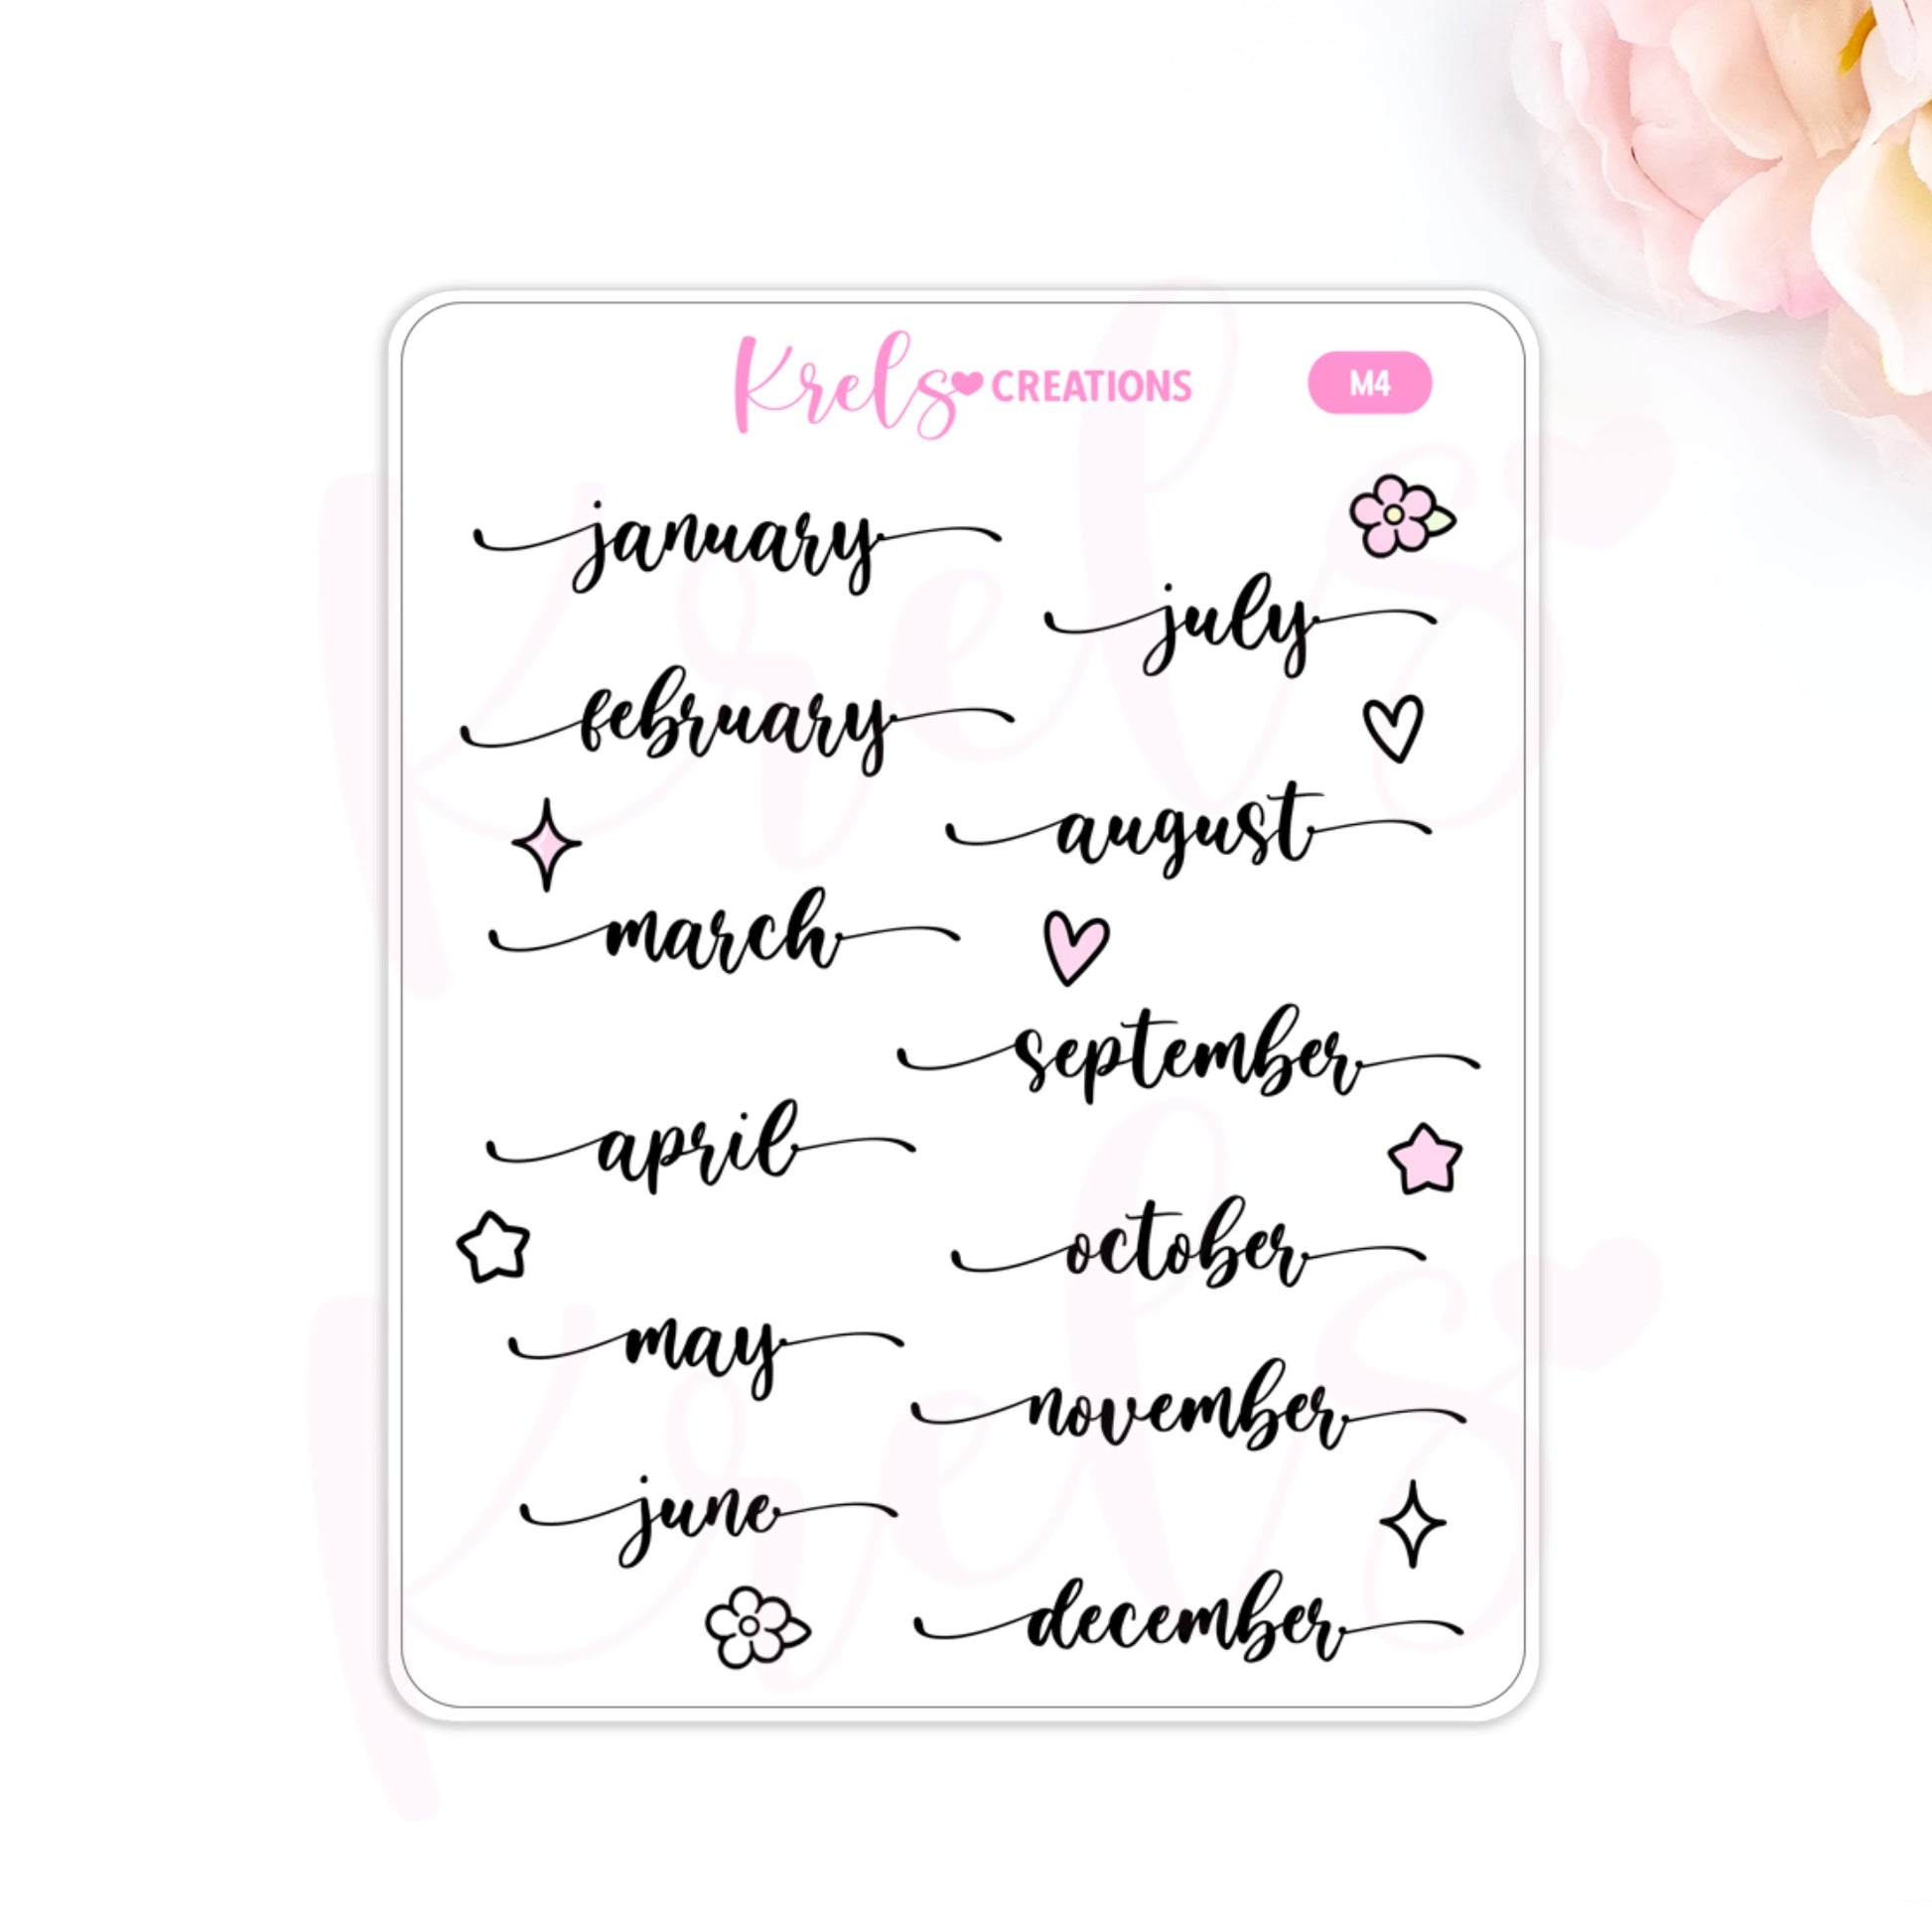 Krels CREATIONS
M4
january
february
march
april
may
june
july
august
september
october
november
december
Krels
Krels